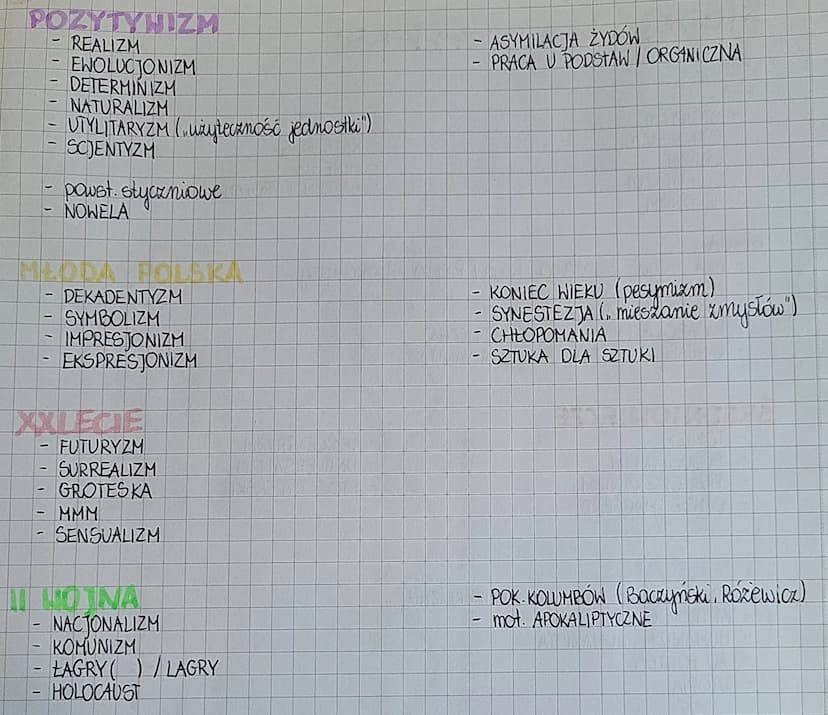 POZYTYWIZM
- REALIZM
- EWOLUCJONIZM
- DETERMINIZM
- NATURALIZM
- UTYLITARYZM („użyteczność jednostki")
- SCJENTYZM
- powst. styczniowe
- NOWELA
- ASYMILACJA ŻYDÓW
- PRACA U PODSTAW / ORGANICZNA
MŁODA POLSKA
- DEKADENTYZM
- SYMBOLIZM
- IMPRESJONIZM
- EKSPRESJONIZM
- KONIEC WIEKU (pesymizm)
- SYNESTEZJA („mieszanie zmysłów")
- CHŁOPOMANIA
- SZTUKA DLA SZTUKI
XXLECIE
- FUTURYZM
- SURREALIZM
- GROTESKA
- MMM
- SENSUALIZM
II WOJNA
- NACJONALIZM
- KOMUNIZM
- ŁAGRY ( ) / LAGRY
- HOLOCAUST
- POK. KOLUMBÓW (Baczyński, Różewicz)
- mot. APOKALIPTYCZNE